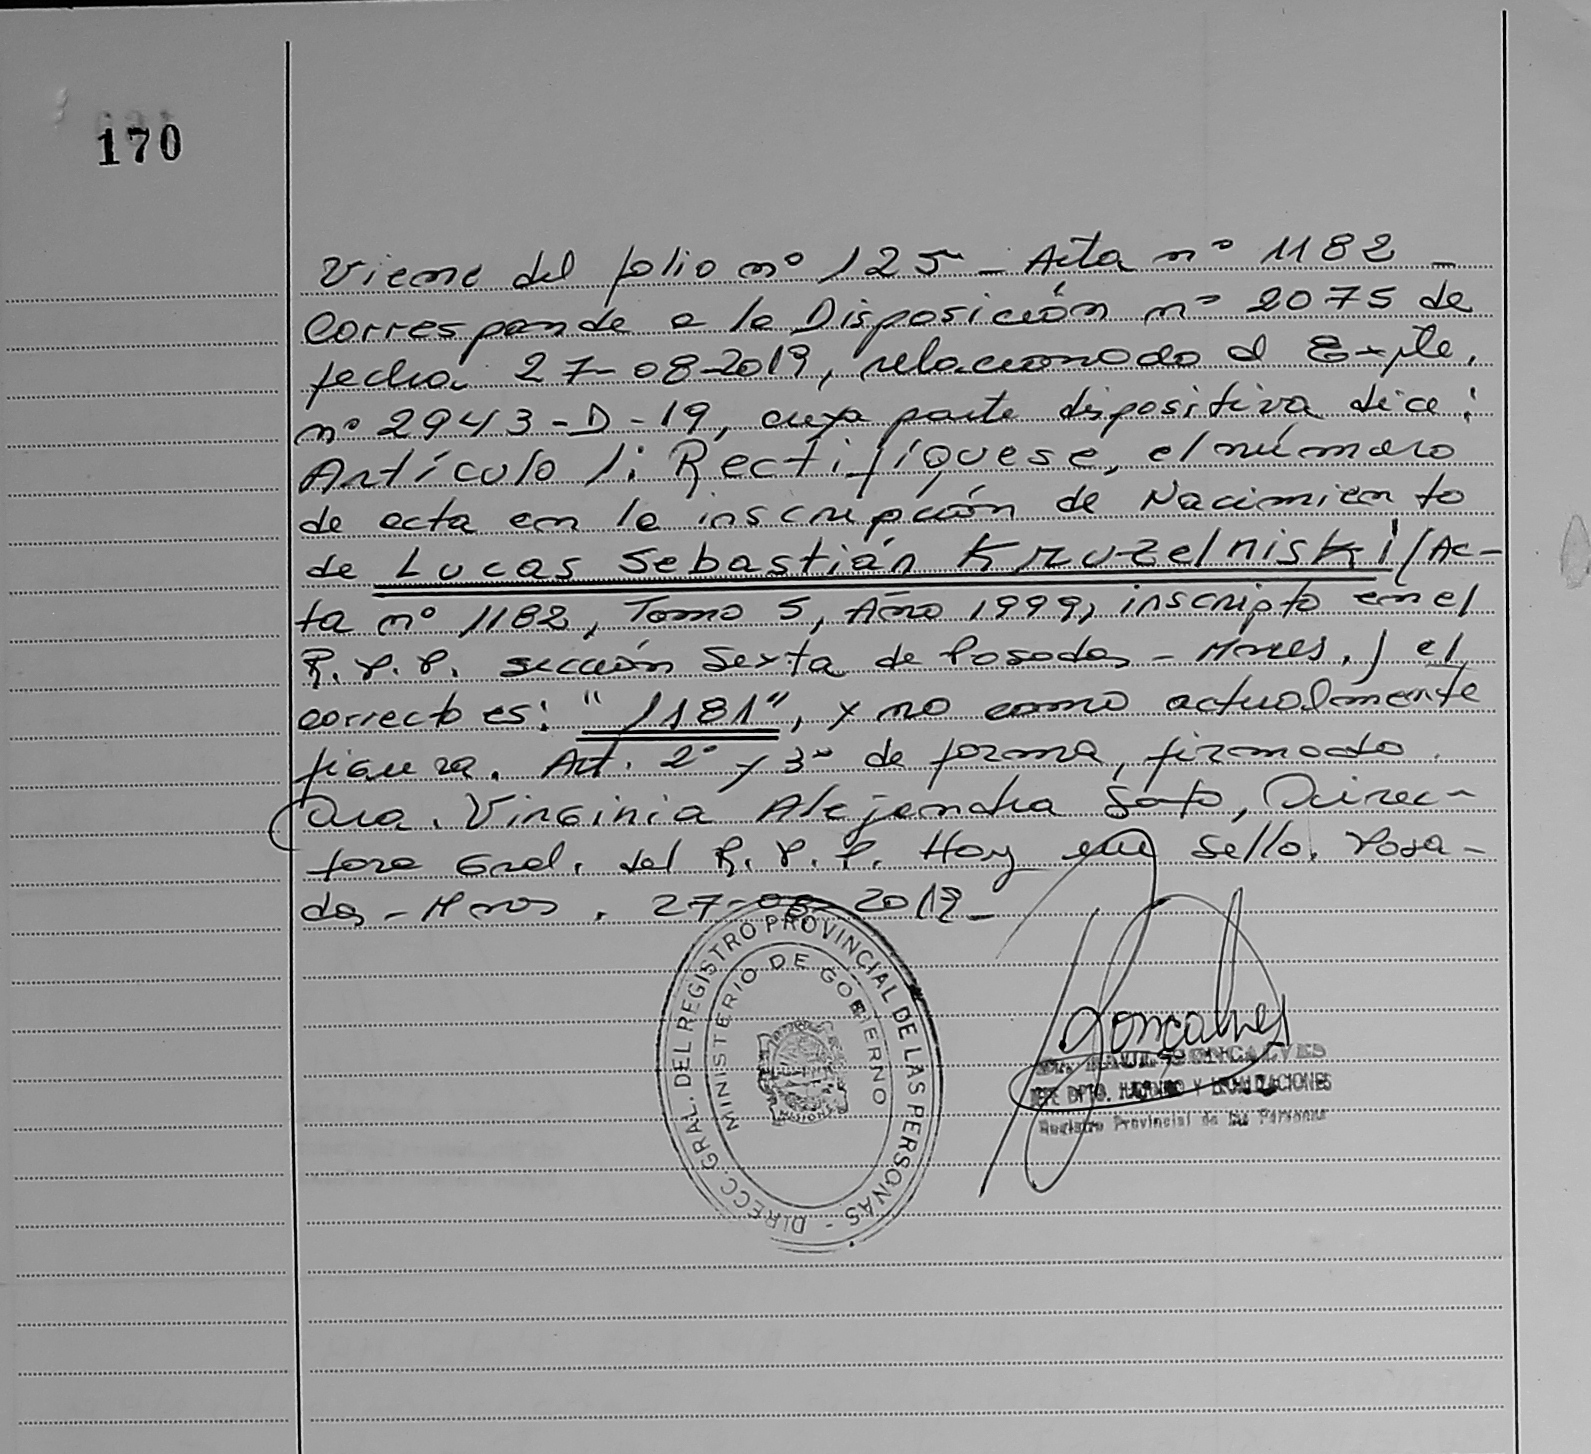 170
Viene del folio nº 125 - Acta nº 1182 -
Corresponde a la Disposición nº 2075 de
fecha 27-08-2019, relacionado al Expte.
nº 2943-D-19, cuya parte dispositiva dice:
Artículo 1: Rectifíquese, el número
de acta en la inscripción de Nacimiento
de Lucas Sebastián Kruzelniski (Ac-
ta nº 1182, Tomo 5, Año 1999, inscripto en el
R.P.P. sección Sexta de Posadas - Mnes.) el
correcto es: "1181", y no como actualmente
figura. Art. 2º y 3º de forma, firmado
Dra. Virginia Alejandra Soto, Direc-
tora Gral. del R.P.P. Hay un sello. Posa-
das - Mnes. 27-08-2019-
DIRECC. GRAL. DEL REGISTRO PROVINCIAL DE LAS PERSONAS -
MINISTERIO DE GOBIERNO
Goncalves
RAUL GONCALVES
JEFE DPTO. Y LEGALIZACIONES
Registro Provincial de las Personas